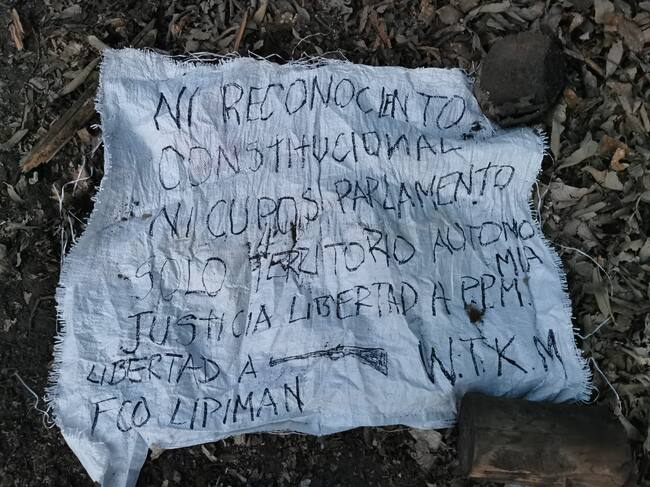 NI RECONOCIENTO
CONSTITUCIONAL
NI CUPOS PARLAMENTO
SOLO TERRITORIO AUTONO
MIA
JUSTICIA LIBERTAD A P.P.M.
LIBERTAD A W.T.K.M
FCO LIPIMAN